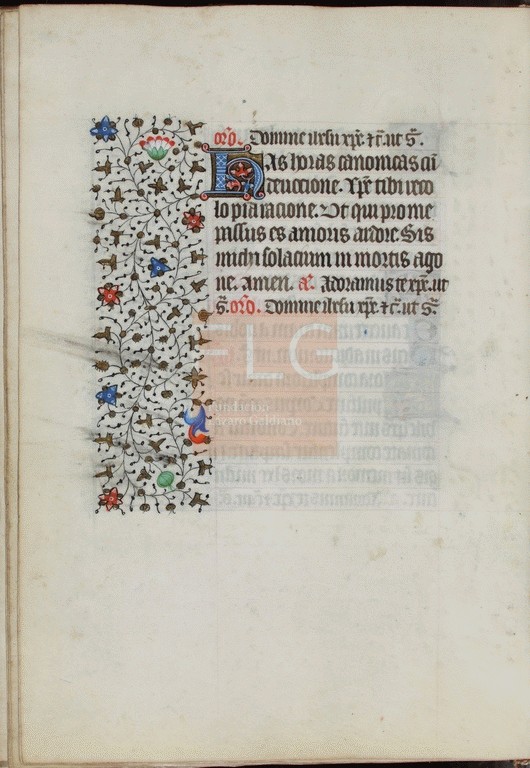 orõ. Domine ihesu xpē. ⁊ c̃. ut s̃.
HAs horas canonicas cū
deuocione. Xpē tibi reco
lo pia racione. Ut qui pro me
passus es amoris ardore. Sis
michi solacium in mortis ago
ne. amen. a᷈. Adoramus te xpē. ut
s̃. orõ. Domine ihesu xpē. ⁊ c̃. ut s̃.
FLG
Fundación
Lázaro Galdiano